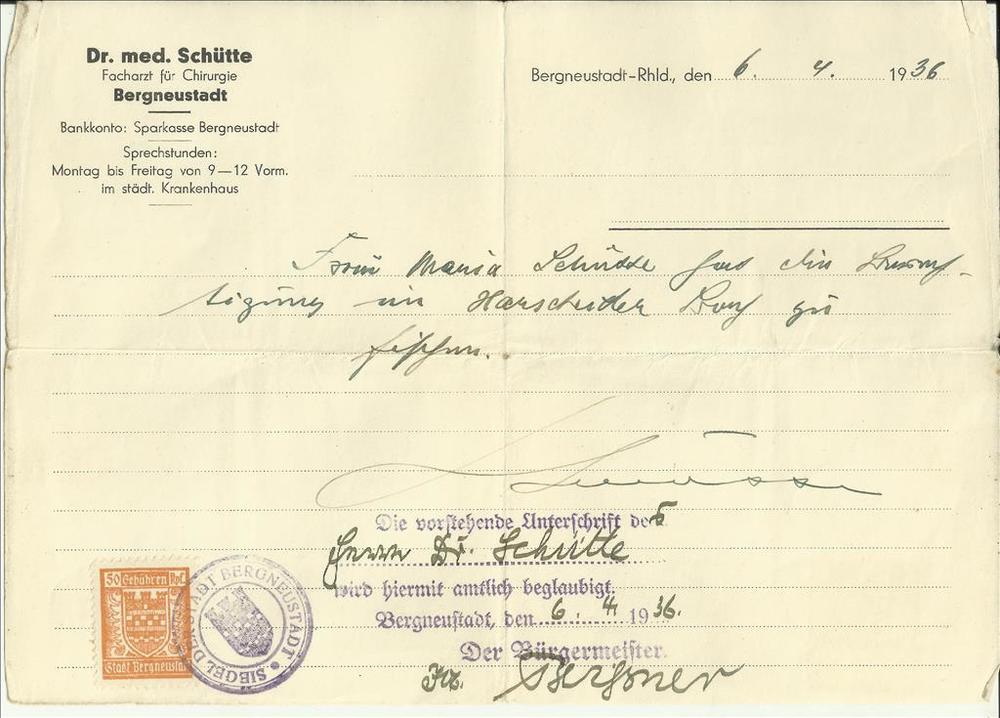 Dr. med. Schütte
Facharzt für Chirurgie
Bergneustadt
Bankkonto: Sparkasse Bergneustadt
Sprechstunden:
Montag bis Freitag von 9—12 Vorm.
im städt. Krankenhaus
Bergneustadt-Rhld., den 6. 4. 1936
Frau Maria Schütte hat die Berech-
tigung im Harscheider Bach zu
fischen.
Die vorstehende Unterschrift des
Herrn Dr. Schütte
wird hiermit amtlich beglaubigt.
Bergneustadt, den 6. 4. 1936.
Der Bürgermeister.
50 Gebühren Rpf.
Stadt Bergneustadt
SIEGEL DER STADT BERGNEUSTADT